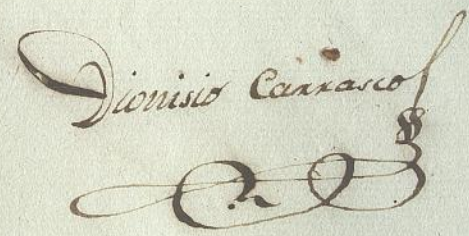 Dionisio Carrasco